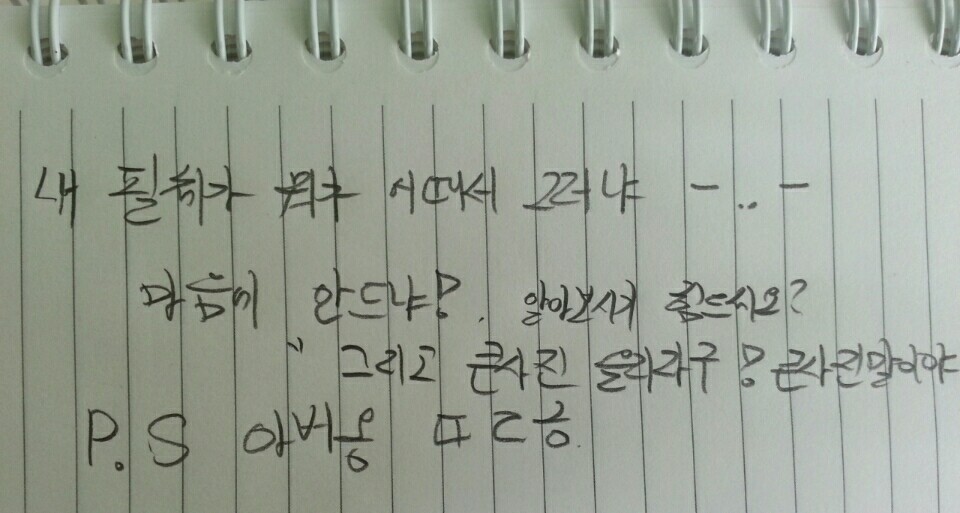 내 필체가 뭐가 어때서 그러냐 -..-
마음에 안드냐? 알아보시기 힘드시오?
그리고 큰사진 올리라구? 큰사진말이야
P.S